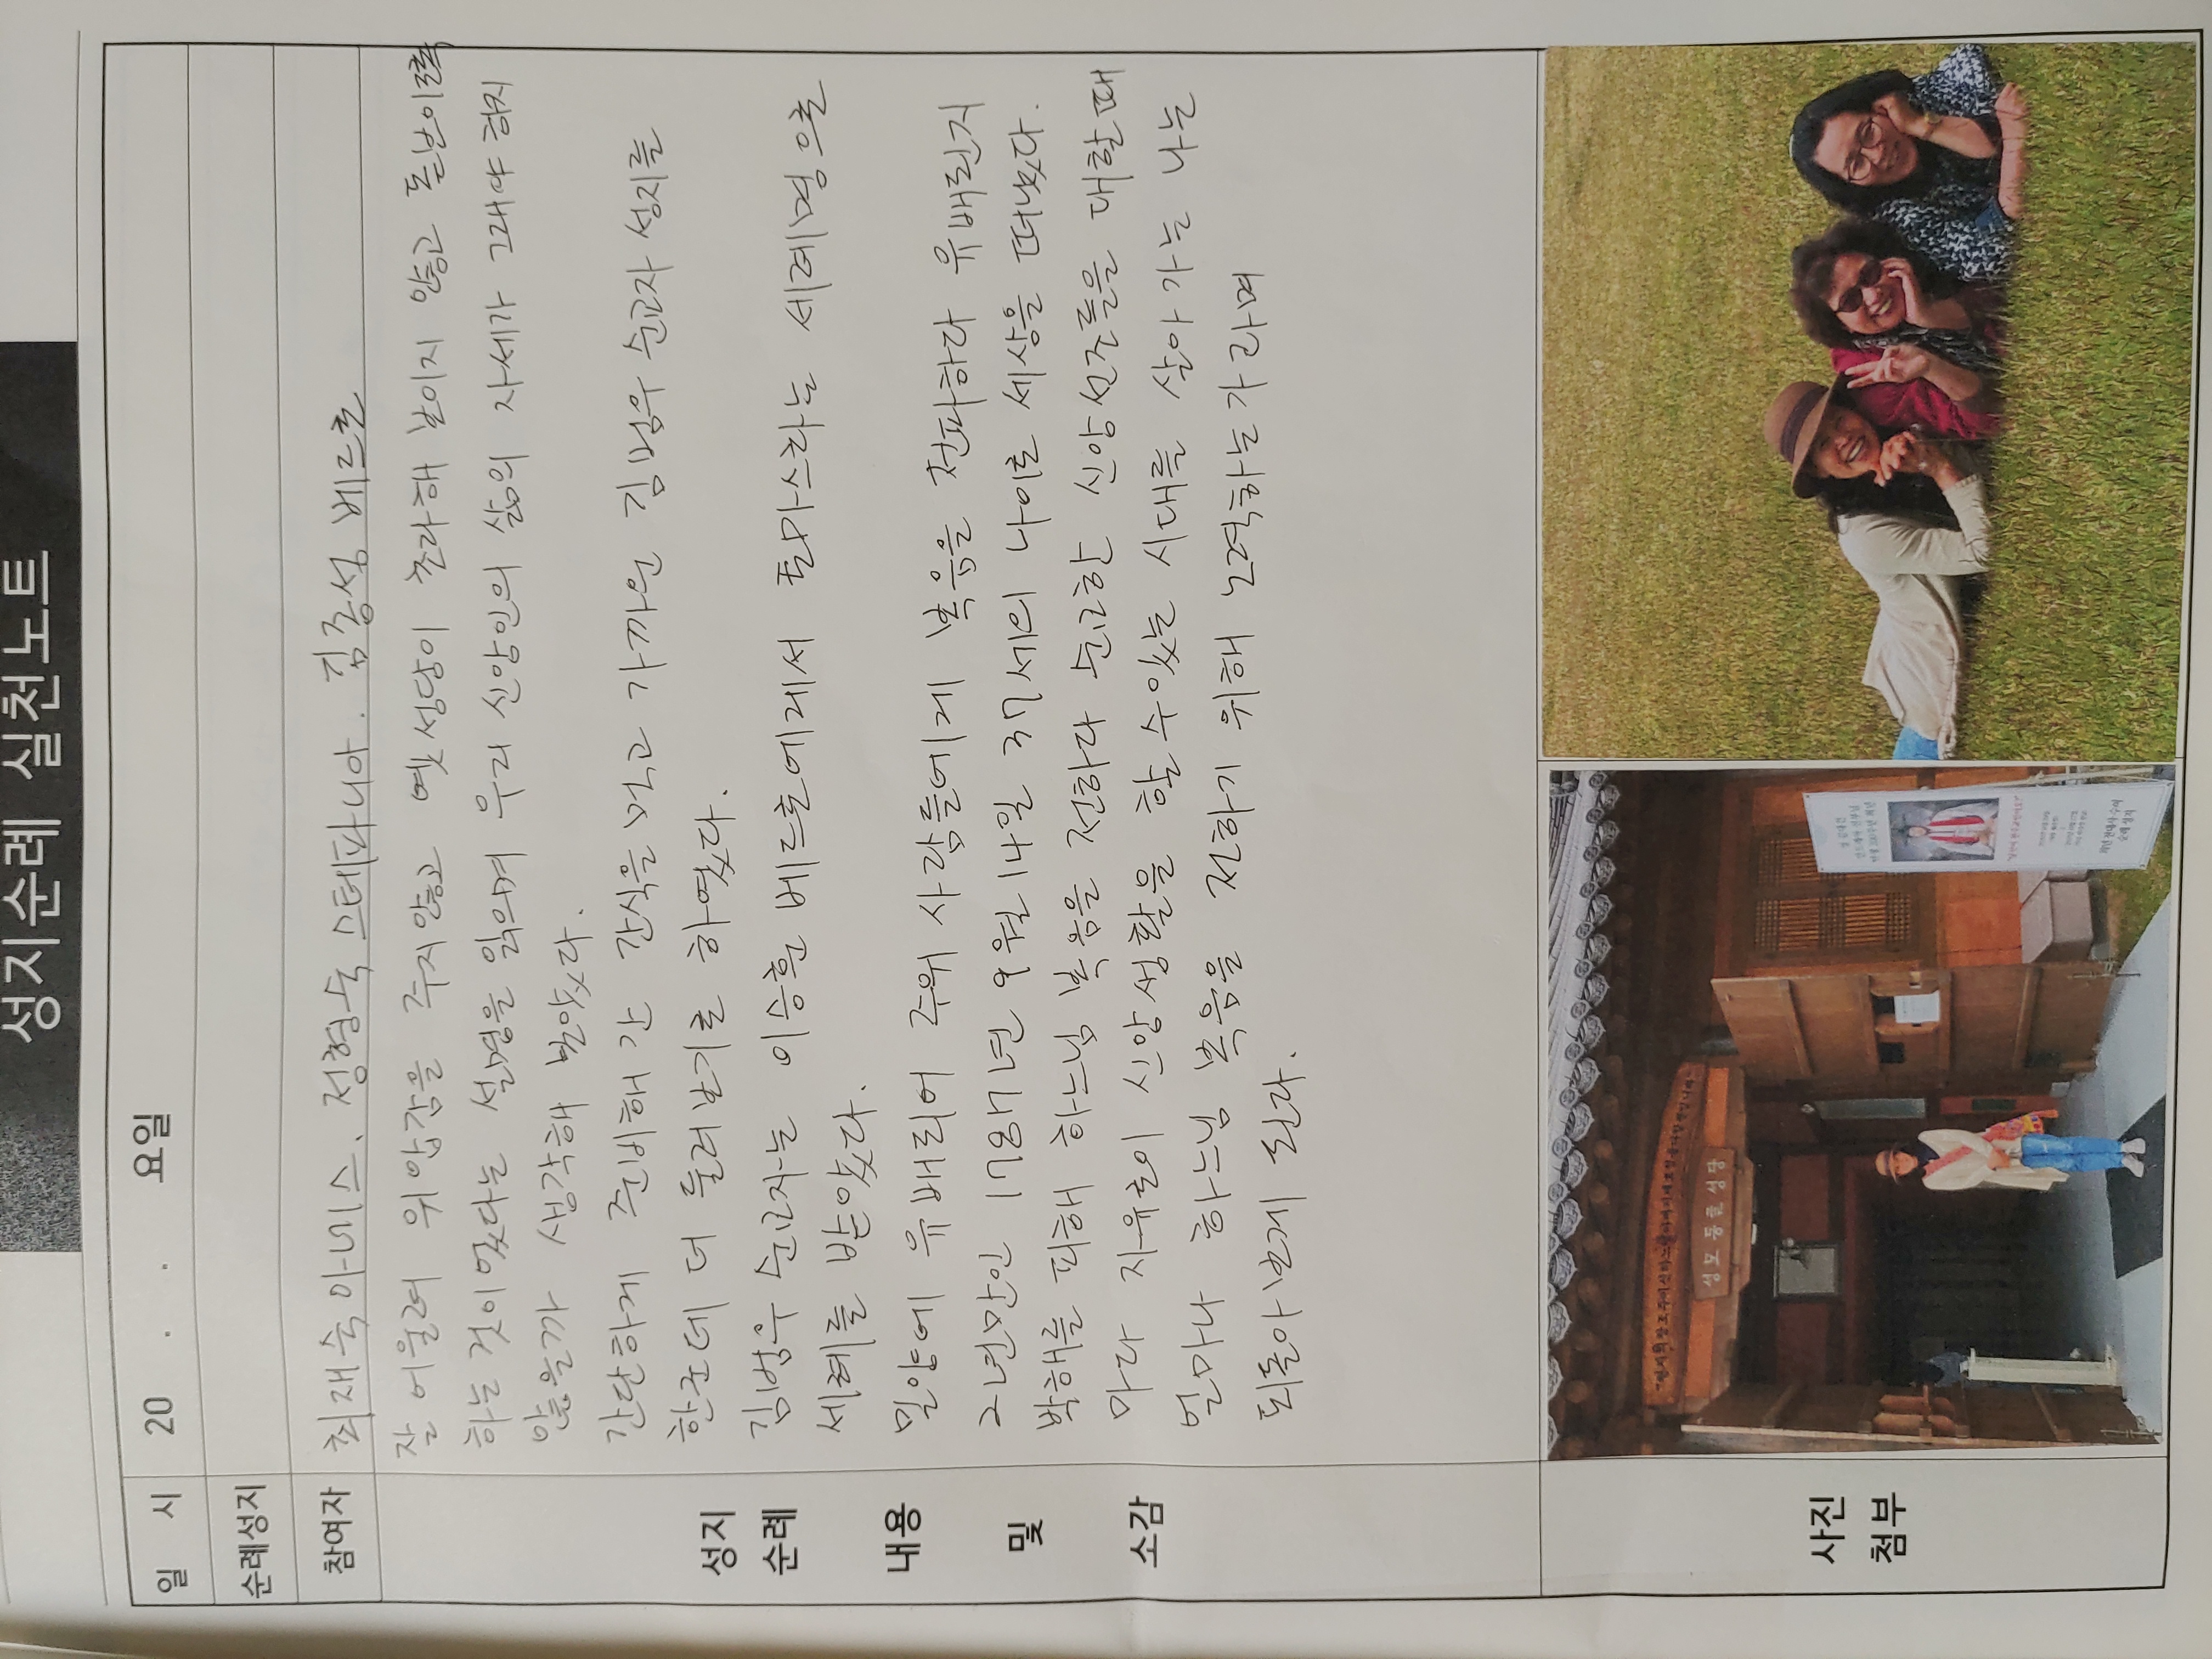 성지순례 실천노트
일 시 20 . . . 요일
순례성지
참여자 최재숙아네스. 정형숙 스테파니아. 김종성 베드로
성지 순례 내용 및 소감
잘 어울려 위압감을 주지않고 옛 성당이 초라해 보이지 않고 돋보이도록
하는 것이었다는 설명을 읽으며 우리 신앙인의 삶의 자세가 그래야 하지
않을까 생각해 보았다.
간단하게 준비해 간 간식을 먹고 가까운 김범우 순교자 성지를
한군데 더 둘러보기로 하였다.
김범우 순교자는 이승훈 베드로에게서 토마스라는 세례명으로
세례를 받았다.
밀양에 유배되어 주위 사람들에게 복음을 전파하다 유배된지
2년만인 1787년 9월 14일 37세의 나이로 세상을 떠났다.
박해를 피해 하느님 복음을 전하다 순교한 신앙선조들을 대할때
마다 자유로이 신앙생활을 할 수있는 시대를 살아가는 나는
얼마나 하느님 복음을 전하기 위해 노력하는가 라며
되돌아 보게 된다.
사진 첨부
성모동굴성당